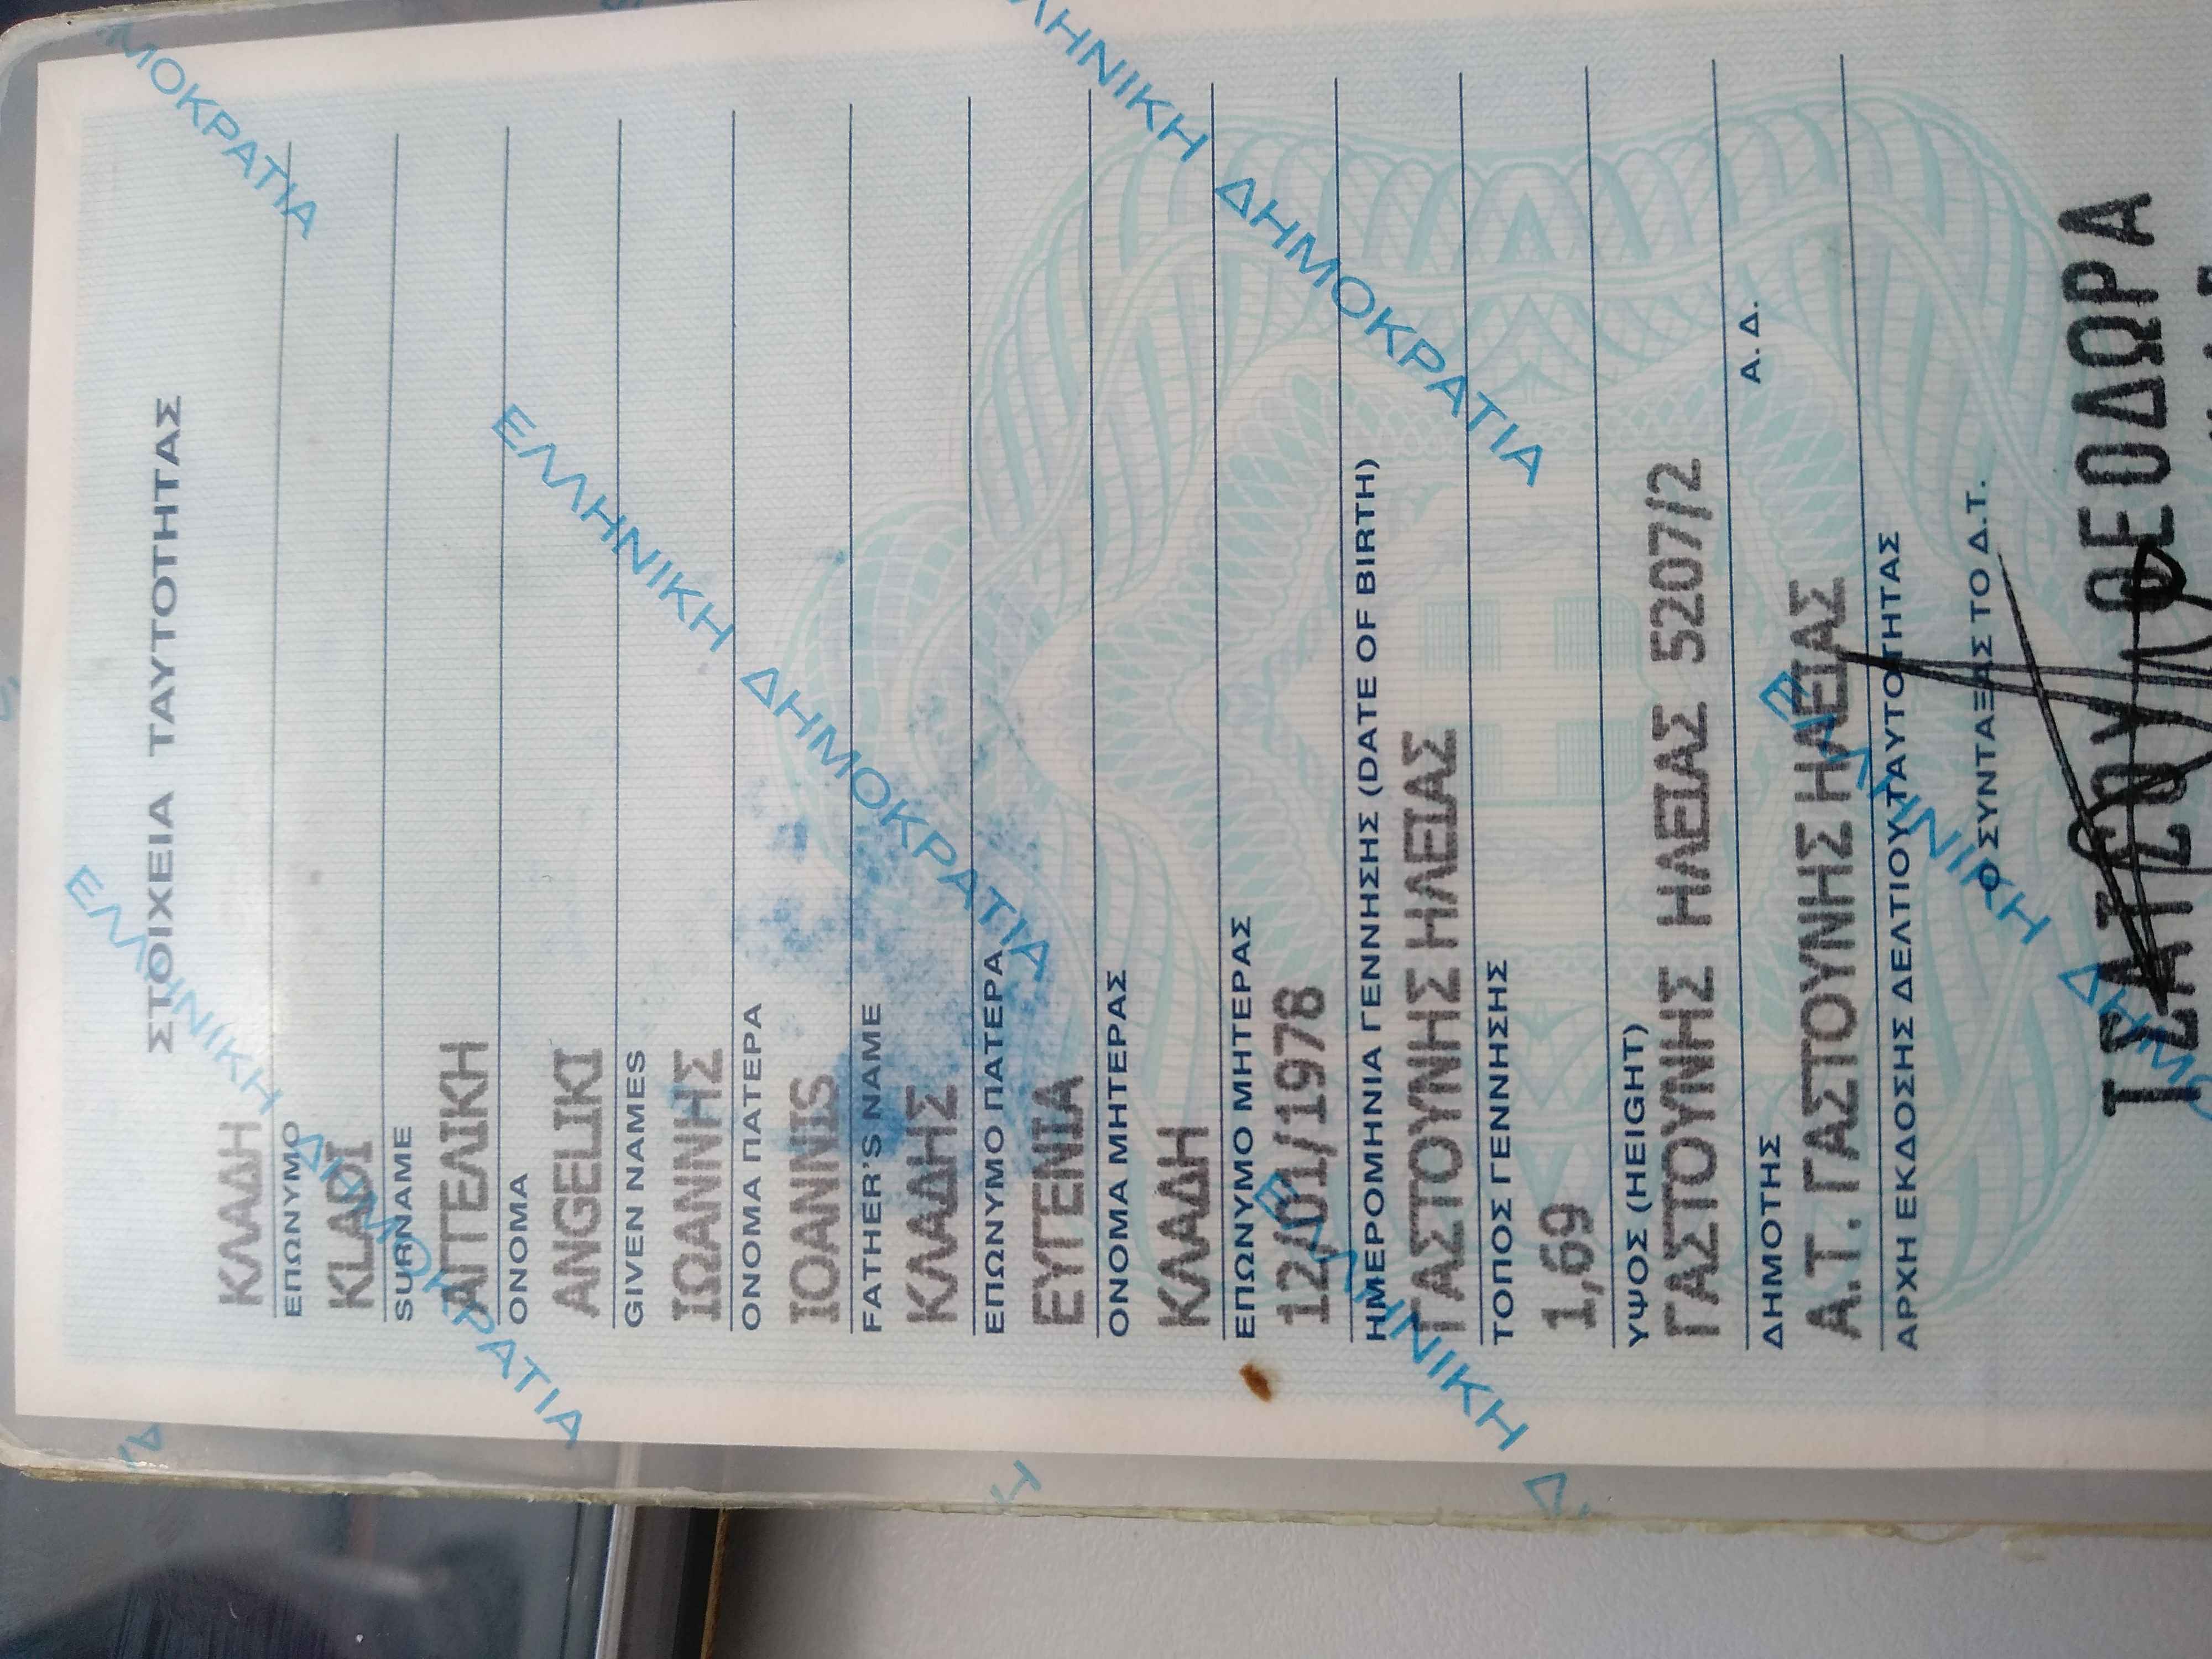 ΣΤΟΙΧΕΙΑ ΤΑΥΤΟΤΗΤΑΣ
ΚΛΑΔΗ
ΕΠΩΝΥΜΟ
KLADI
SURNAME
ΑΓΓΕΛΙΚΗ
ΟΝΟΜΑ
ANGELIKI
GIVEN NAMES
ΙΩΑΝΝΗΣ
ΟΝΟΜΑ ΠΑΤΕΡΑ
IOANNIS
FATHER'S NAME
ΚΛΑΔΗΣ
ΕΠΩΝΥΜΟ ΠΑΤΕΡΑ
ΕΥΓΕΝΙΑ
ΟΝΟΜΑ ΜΗΤΕΡΑΣ
ΚΛΑΔΗ
ΕΠΩΝΥΜΟ ΜΗΤΕΡΑΣ
12/01/1978
ΗΜΕΡΟΜΗΝΙΑ ΓΕΝΝΗΣΗΣ (DATE OF BIRTH)
ΓΑΣΤΟΥΝΗΣ ΗΛΕΙΑΣ
ΤΟΠΟΣ ΓΕΝΝΗΣΗΣ
1,69
ΥΨΟΣ (HEIGHT)
ΓΑΣΤΟΥΝΗΣ ΗΛΕΙΑΣ 5207/2
ΔΗΜΟΤΗΣ Α.Δ.
Α.Τ. ΓΑΣΤΟΥΝΗΣ ΗΛΕΙΑΣ
ΑΡΧΗ ΕΚΔΟΣΗΣ ΔΕΛΤΙΟΥ ΤΑΥΤΟΤΗΤΑΣ
Ο ΣΥΝΤΑΞΑΣ ΤΟ Δ.Τ.
ΘΕΟΔΩΡΑ
ΕΛΛΗΝΙΚΗ ΔΗΜΟΚΡΑΤΙΑ
ΕΛΛΗΝΙΚΗ ΔΗΜΟΚΡΑΤΙΑ
ΕΛΛΗΝΙΚΗ ΔΗΜΟΚΡΑΤΙΑ
ΕΛΛΗΝΙΚΗ
ΕΛΛΗΝΙΚΗ